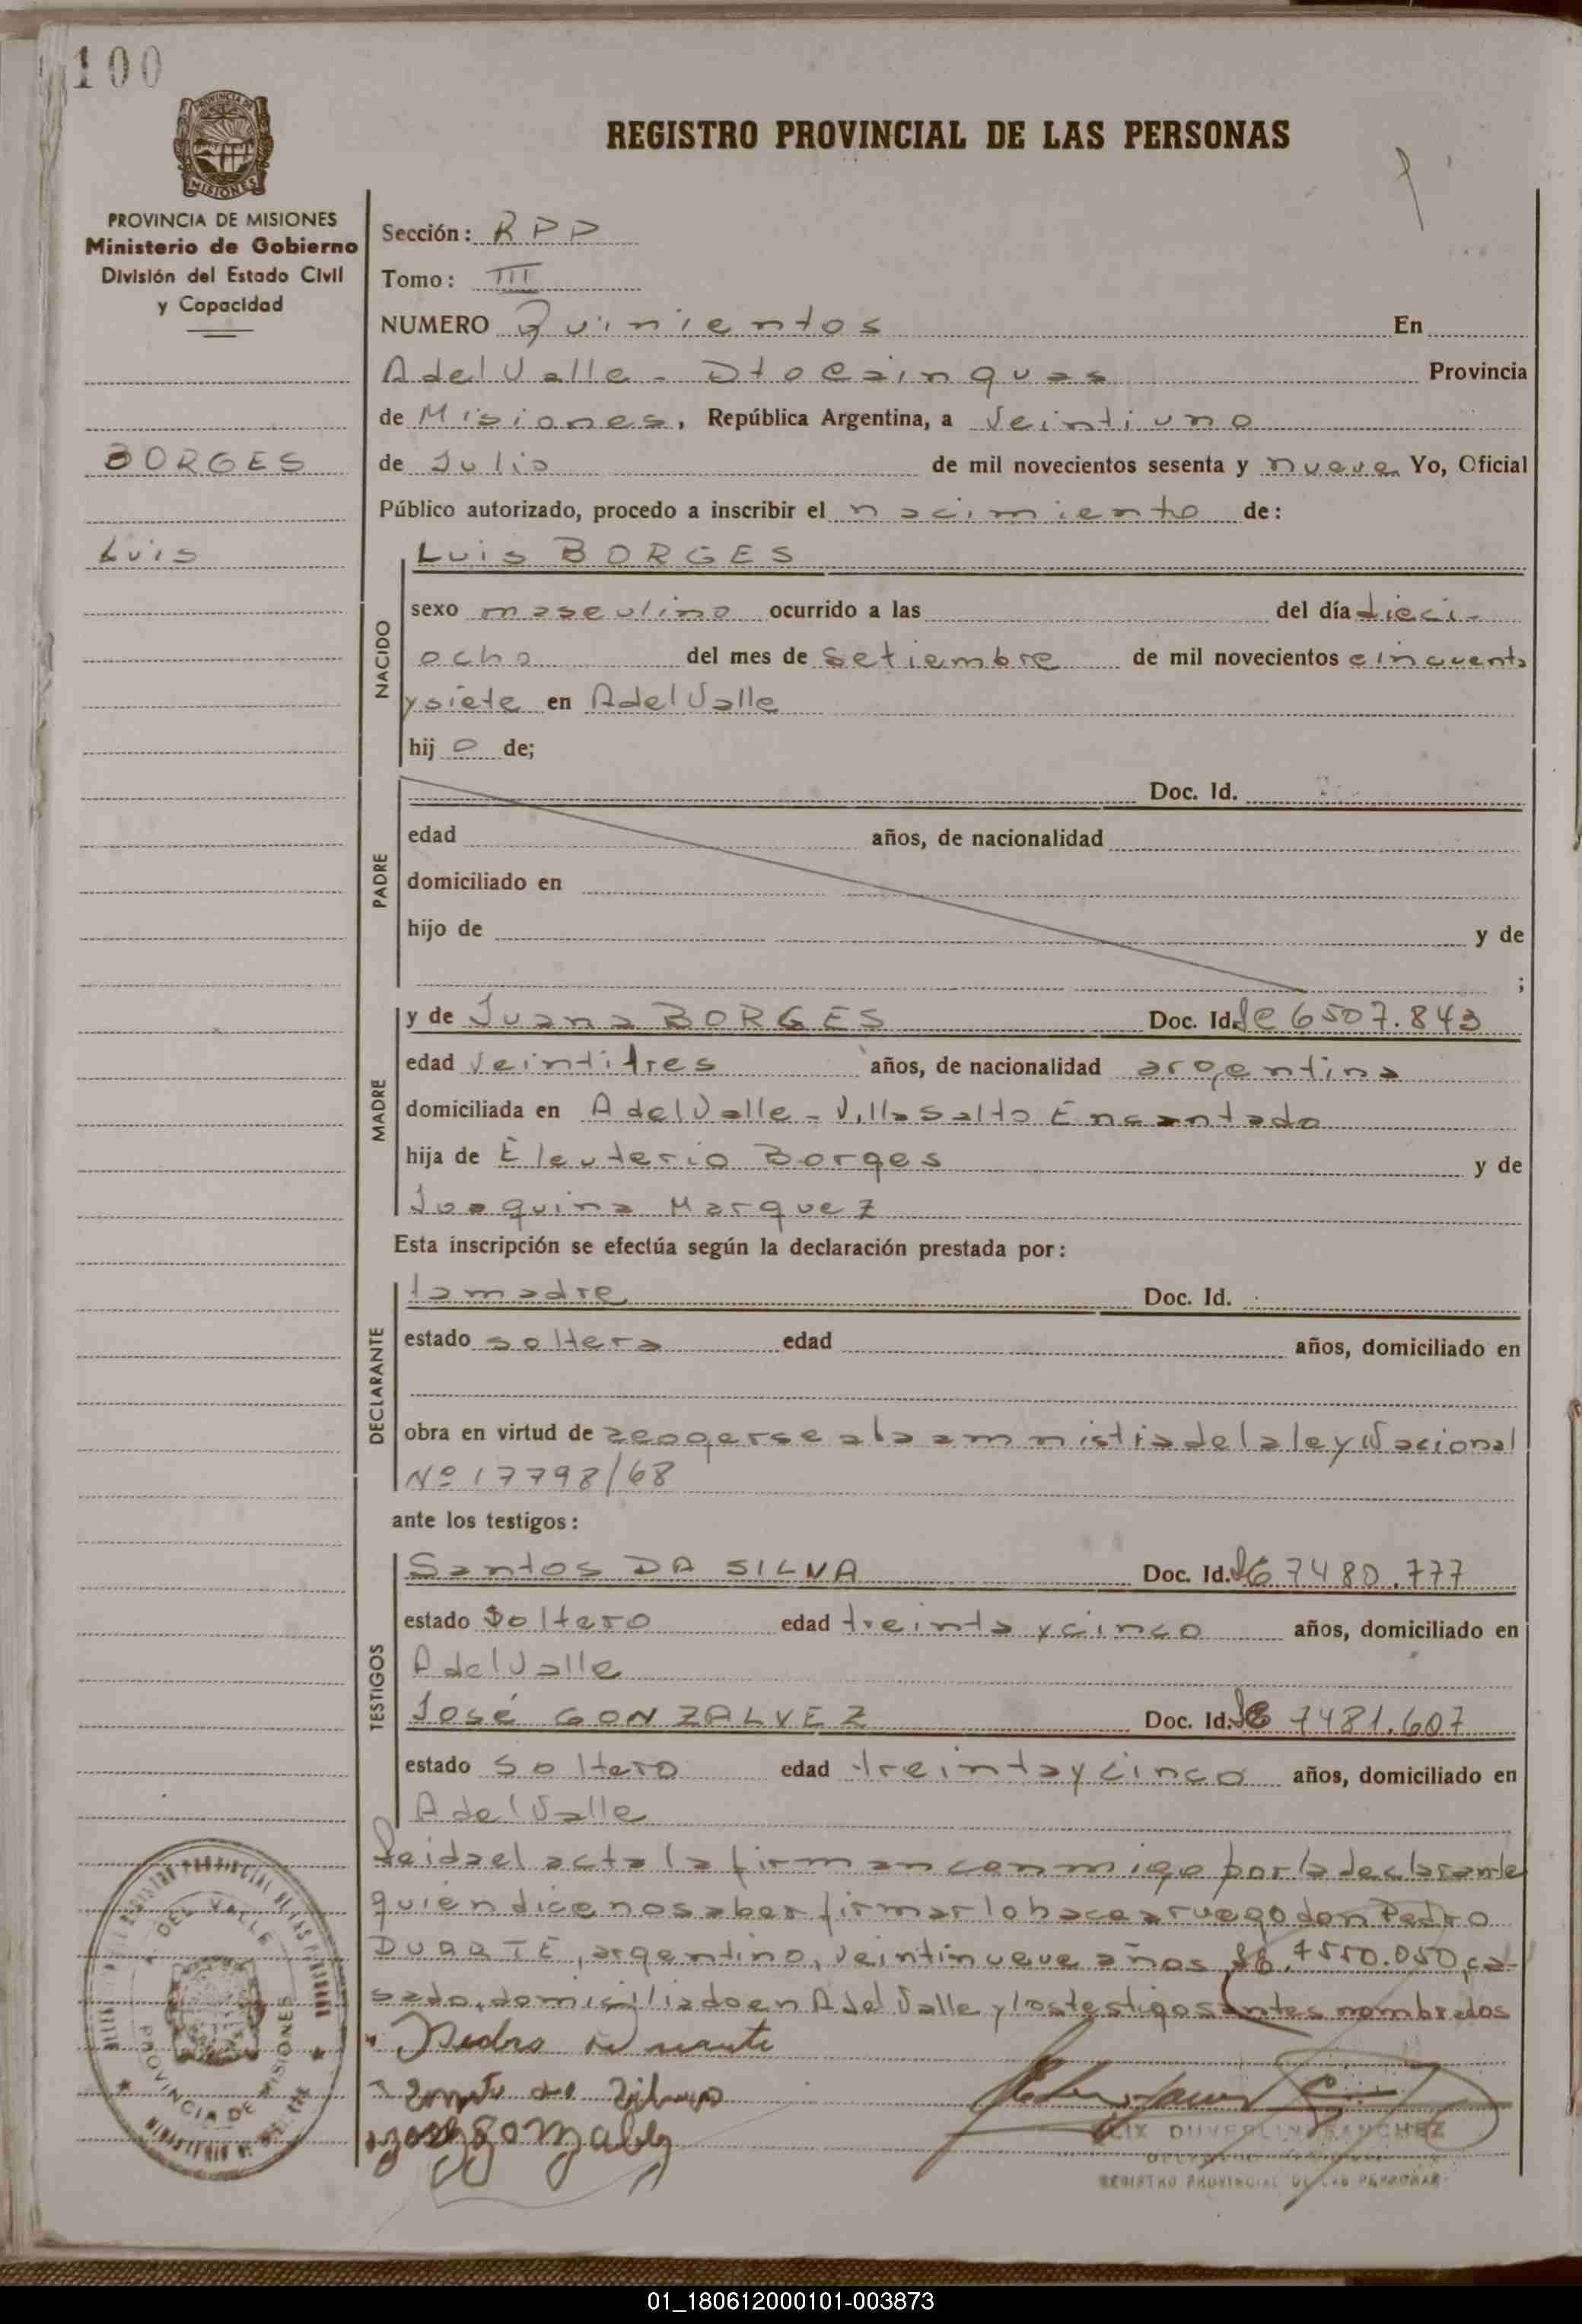 100
REGISTRO PROVINCIAL DE LAS PERSONAS
PROVINCIA DE
MISIONES
PROVINCIA DE MISIONES
Ministerio de Gobierno
División del Estado Civil
y Capacidad
BORGES
Luis
Sección: RPP
Tomo: III
NUMERO Quinientos En
A del Valle - Dto Cainguas Provincia
de Misiones, República Argentina, a Veintiuno
de Julio de mil novecientos sesenta y nueve Yo, Oficial
Público autorizado, procedo a inscribir el nacimiento de:
NACIDO
Luis BORGES
sexo masculino ocurrido a las del día dieci-
ocho del mes de Setiembre de mil novecientos cincuenta
y siete en A del Valle
hij o de;
PADRE
Doc. Id.
edad años, de nacionalidad
domiciliado en
hijo de y de
;
MADRE
y de Juana BORGES Doc. Id. Lc 6507.843
edad Veintitres años, de nacionalidad argentina
domiciliada en A del Valle - Villa Salto Encantado
hija de Eleuterio Borges y de
Joaquina Marquez
Esta inscripción se efectúa según la declaración prestada por:
DECLARANTE
la madre Doc. Id.
estado soltera edad años, domiciliado en
obra en virtud de acogerse a la amnistia de la ley Nacional
Nº 17798/68
ante los testigos:
TESTIGOS
Santos DA SILVA Doc. Id. 7480.777
estado Soltero edad treinta y cinco años, domiciliado en
A del Valle
José GONZALVEZ Doc. Id. 7481.607
estado Soltero edad treinta y cinco años, domiciliado en
A del Valle
Leida el acta la firman conmigo por la declarante
quien dice no saber firmar lo hace a ruego don Pedro
DUARTE, argentino, veintinueve años, 7550.050, ca-
sado, domiciliado en A del Valle y los testigos antes nombrados
Pedro Duarte
A. DEL VALLE
PROVINCIA DE MISIONES
DUVERLIN SANCHEZ
REGISTRO PROVINCIAL DE LAS PERSONAS
01_180612000101-003873